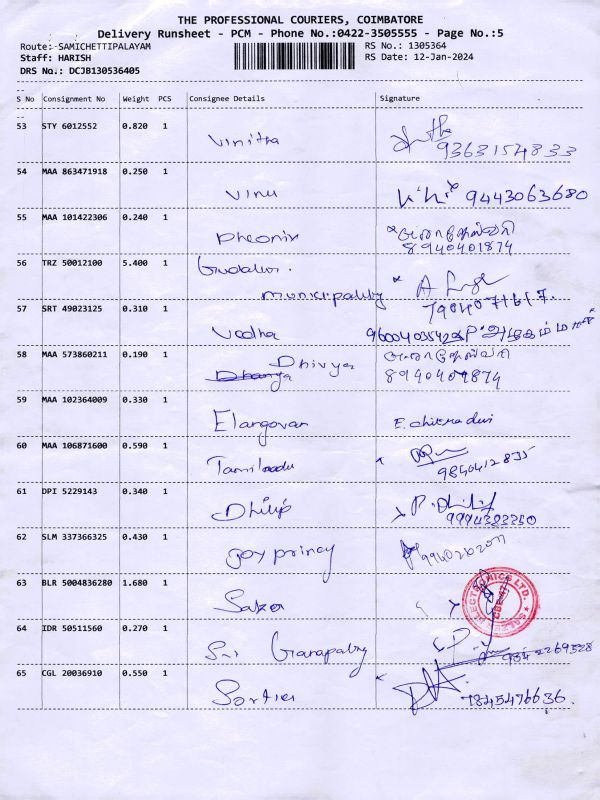 THE PROFESSIONAL COURIERS, COIMBATORE
Delivery Runsheet - PCM - Phone No.:0422-3505555 - Page No.:5
Route:-SAMICHETTIPALAYAM
RS No.: 1305364
Staff: HARISH
RS Date: 12-Jan-2024
DRS No.: DCJB130536405
S No Consignment No Weight PCS Consignee Details Signature
53 STY 6012552 0.820 1 Vinitha 9363154833
54 MAA 863471918 0.250 1 Vinu 9443063680
55 MAA 101422306 0.240 1 Pheonix 8940401874
56 TRZ 50012100 5.400 1 Gudalur.
municipality
57 SRT 49023125 0.310 1 Vadha
58 MAA 573860211 0.190 1 Dhivya
Dhanya 8940401874
59 MAA 102364009 0.330 1 Elangovan E. chitra devi
60 MAA 106871600 0.590 1 Tamilnadu
61 DPI 5229143 0.340 1 Dhilip P. Dhilip
62 SLM 337366325 0.430 1 Joy princy
63 BLR 5004836280 1.680 1
64 IDR 50511560 0.270 1 Sri Ganapathy 9342269328
65 CGL 20036910 0.550 1 7845476636.